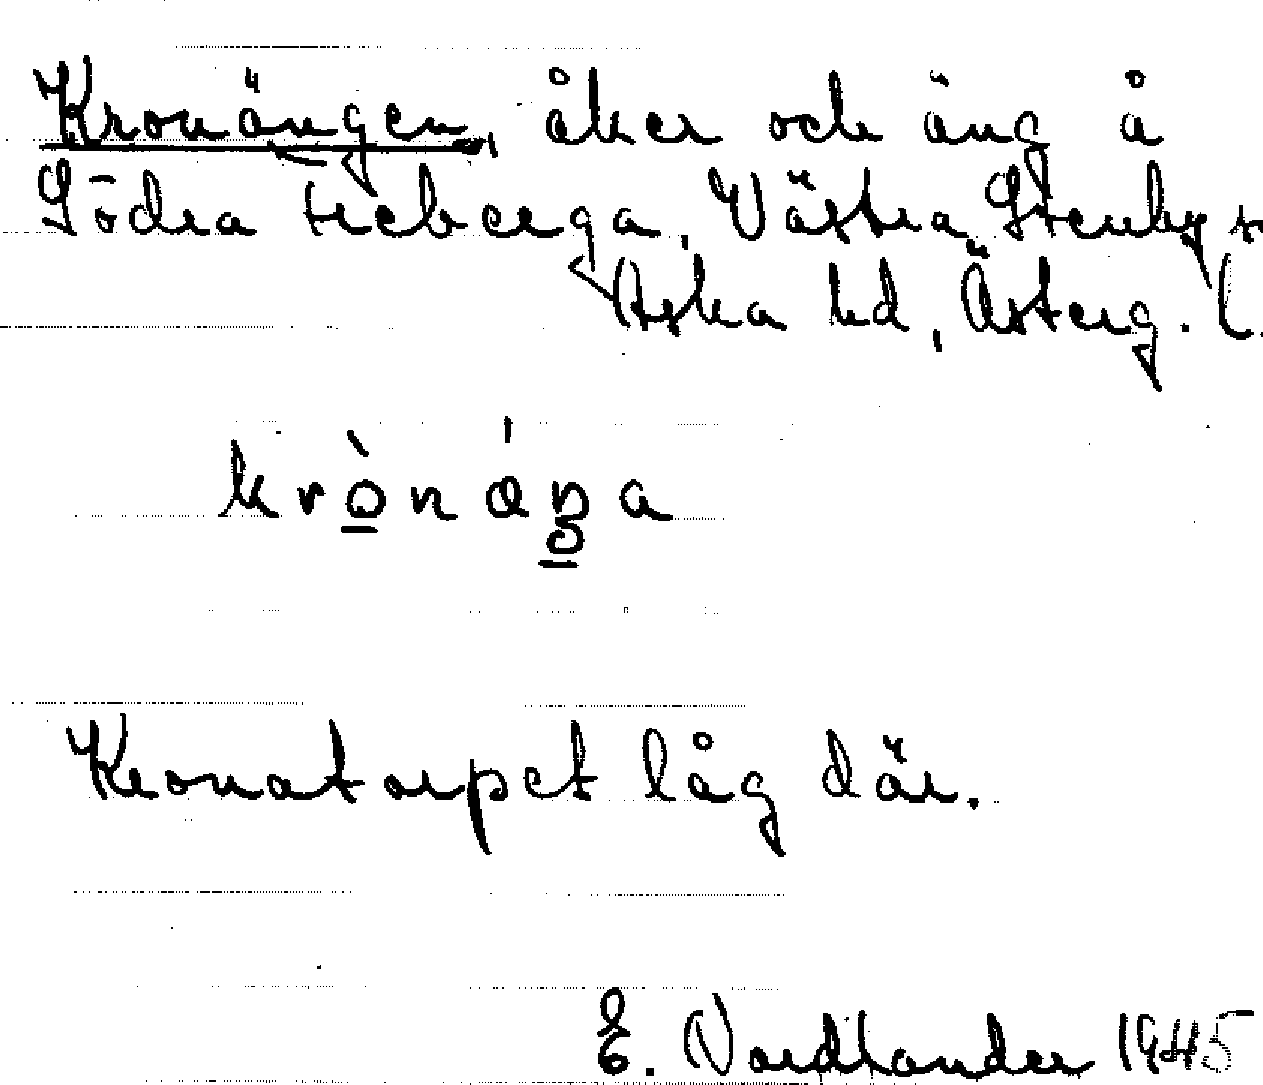 Kronängen, åker och äng å
Södra Freberga, Västra Stenby s
Aska hd, Österg. l.
krònáŋa
Kronatorpet låg där.
E. Nordlander 1945